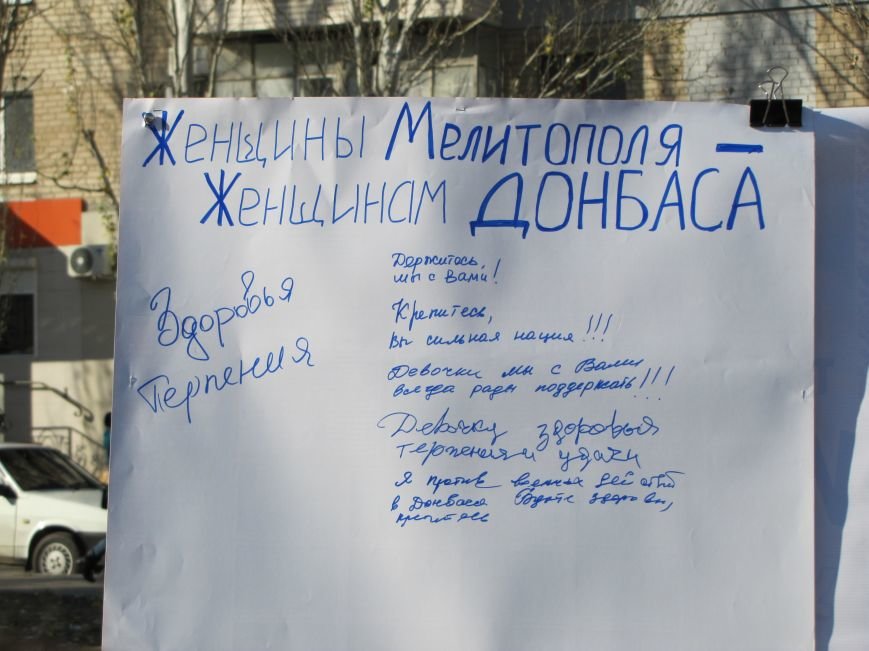 Женщины Мелитополя –
Женщинам ДОНБАСА
Здоровья
Терпения
Держитесь,
мы с Вами!
Крепитесь,
Вы сильная нация!!!
Девочки мы с Вами
всегда рады поддержать!!!
Девочки здоровья
терпения и удачи
Я против военных действий
в Донбаса Будте здоровы,
крепитесь